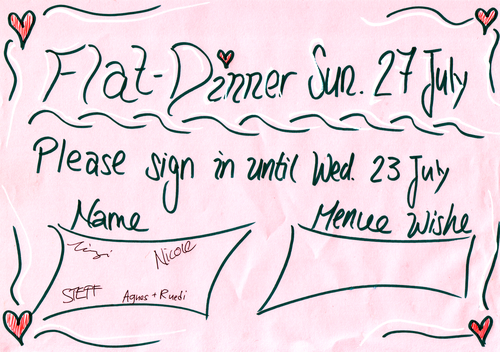 Flat-Dinner Sun. 27 July
Please sign in until Wed. 23 July
Name Menue Wishe
Nicole
STEFF Agnes + Ruedi